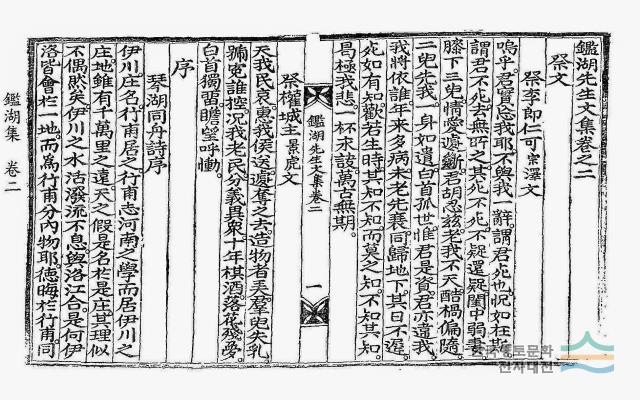 鑑湖先生文集卷之二
祭文
祭李卽仁可宗澤文
嗚乎君實忘我耶不與我一辭謂君死也怳如在斯
謂君不死去無所之其死不死不疑還疑閨中弱妻
膝下三兒情愛遽斷君胡忍玆老我不天酷禍偏隨
二兒先我一身如遺白首孤世惟君是資君亦遺我
我將依誰年来多病未老先衰同歸地下其日不遲
死如有知歡若生時其知不知而莫之知不知其知
曷極我悲一杯永訣萬古無期
鑑湖先生文集卷二
一
祭權城主景虎文
天我民哀惠我侯送遽奪之去造物者 羣兒失乳
號 誰控况我老民分義異衆十年棋酒落花殘夢
白首獨留瞻望呼慟
序
琴湖同舟詩序
伊川庄名行甫居之行甫志河南之學而居伊川之
庄地雖有千萬里之遠天之假是名於是庄其理似
不偶然矣伊川之水沽潑流不息與洛江合是何伊
洛皆會於一地而爲行甫分內物耶德晦於行甫同
鑑湖集 卷二
한국향토문화
전자대전